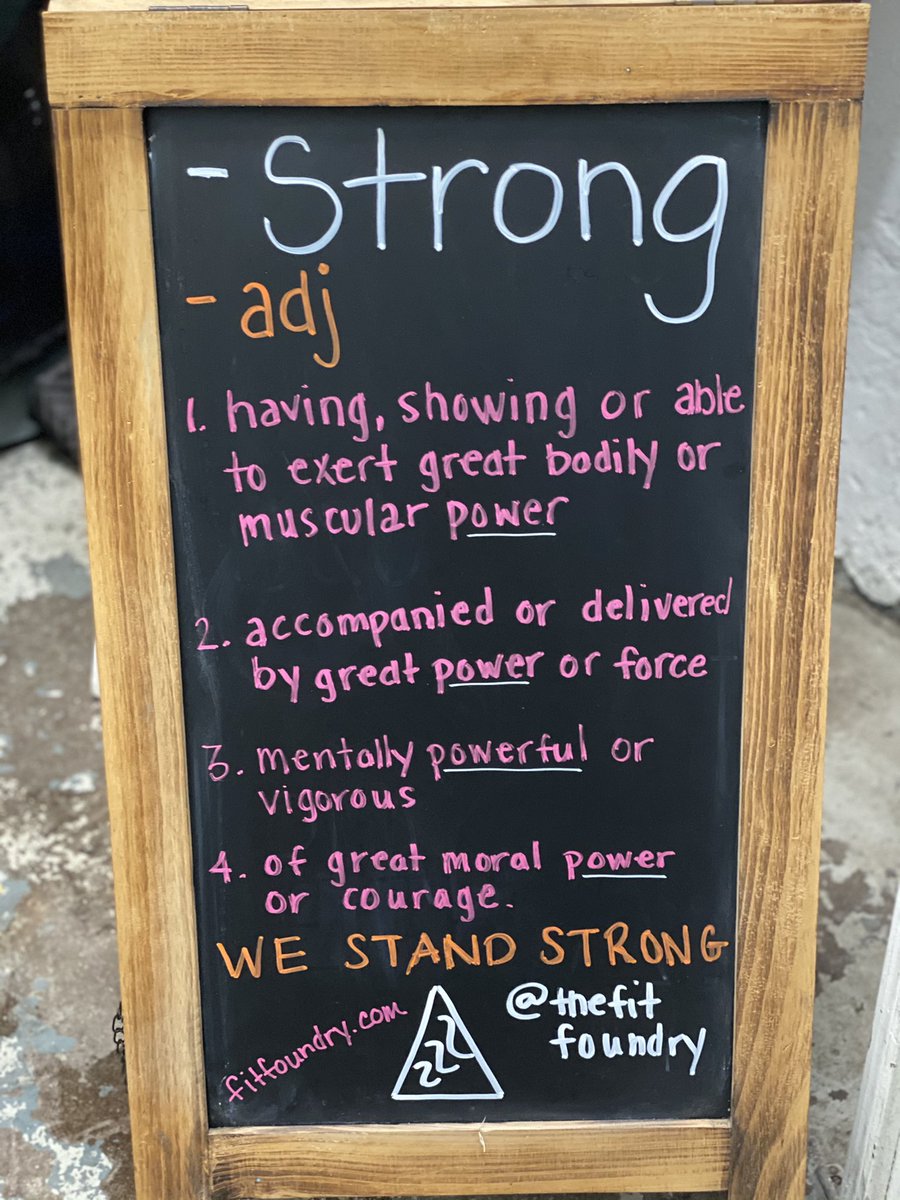 - Strong
- adj
1. having, showing or able
to exert great bodily or
muscular power
2. accompanied or delivered
by great power or force
3. mentally powerful or
vigorous
4. of great moral power
or courage.
WE STAND STRONG
fitfoundry.com
@thefit
foundry